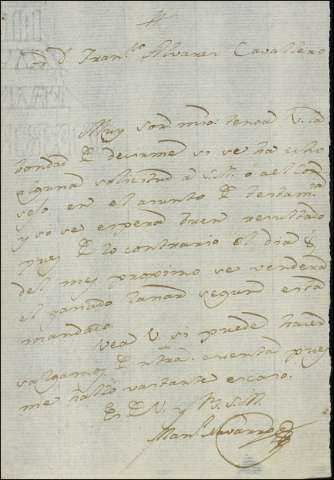 Dn Franco Alvarez Cavallero
Muy Sor mio: tenga V. la
bondad de decirme si se ha echo
alguna solicitud a S.M. o al Con
sejo en el asunto de testamta
y si se espera buen resultado
pues de lo contrario el dia 8
del mes proximo se vendera
el ganado lanar segun esta
mandado.
Vea V. si puede hacer
valgamos de ntra. cuenta pues
me hallo vastante escaso.
Es de V. y B.S.M.
Manl Navarro